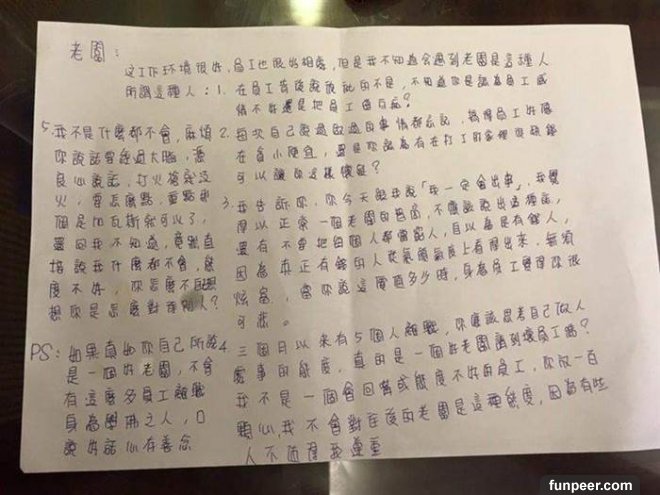 老園：
這工作环境很好，員工也很好相處，但是我不知道会遇到老園是這種人
所謂這種人：1. 在員工背後說彼此的不是，不知道你是認為員工感
情不好還是把員工當白痴？
2. 每次自己說過做過的事情都忘記，搞得員工好像
在貪小便宜，還是你認為有在打工的家裡缺錢
可以讓你這樣懷疑？
3. 我告訴你，你今天敢跟我說「我一定會出事」，我覺
得以正常一個老園的善良，不應該說出這種話，
還有不要把每個人都當窮人，自以為是有錢人，
因為真正有錢的人從氣質氣度上看得出來，無須
炫富，當你說這個值多少時，身為員工覺得你很
可悲。
4. 三個月以來有5個人離職，你應該思考自己做人
處事的態度，真的是一個好老園請到壞員工嗎？
我不是一個會回嘴或態度不好的員工，你放一百
顆心，我不會對在後的老園是這種態度，因為有些
人不值得我尊重
5. 我不是什麼都不會，麻煩
你說話曾經過大腦，憑
良心說話，打火槍幾沒
火，會長腐點，重點那
個是加瓦斯就可以了，
還回我不知道，竟敢直
接說我什麼都不會，態
度不好，你怎麼不回想
想你是怎麼對待別人？
PS：如果真如你自己所說
是一個好老園，不會
有這麼多員工離職
身為學佛之人，口
說好話心存善念
funpeer.com